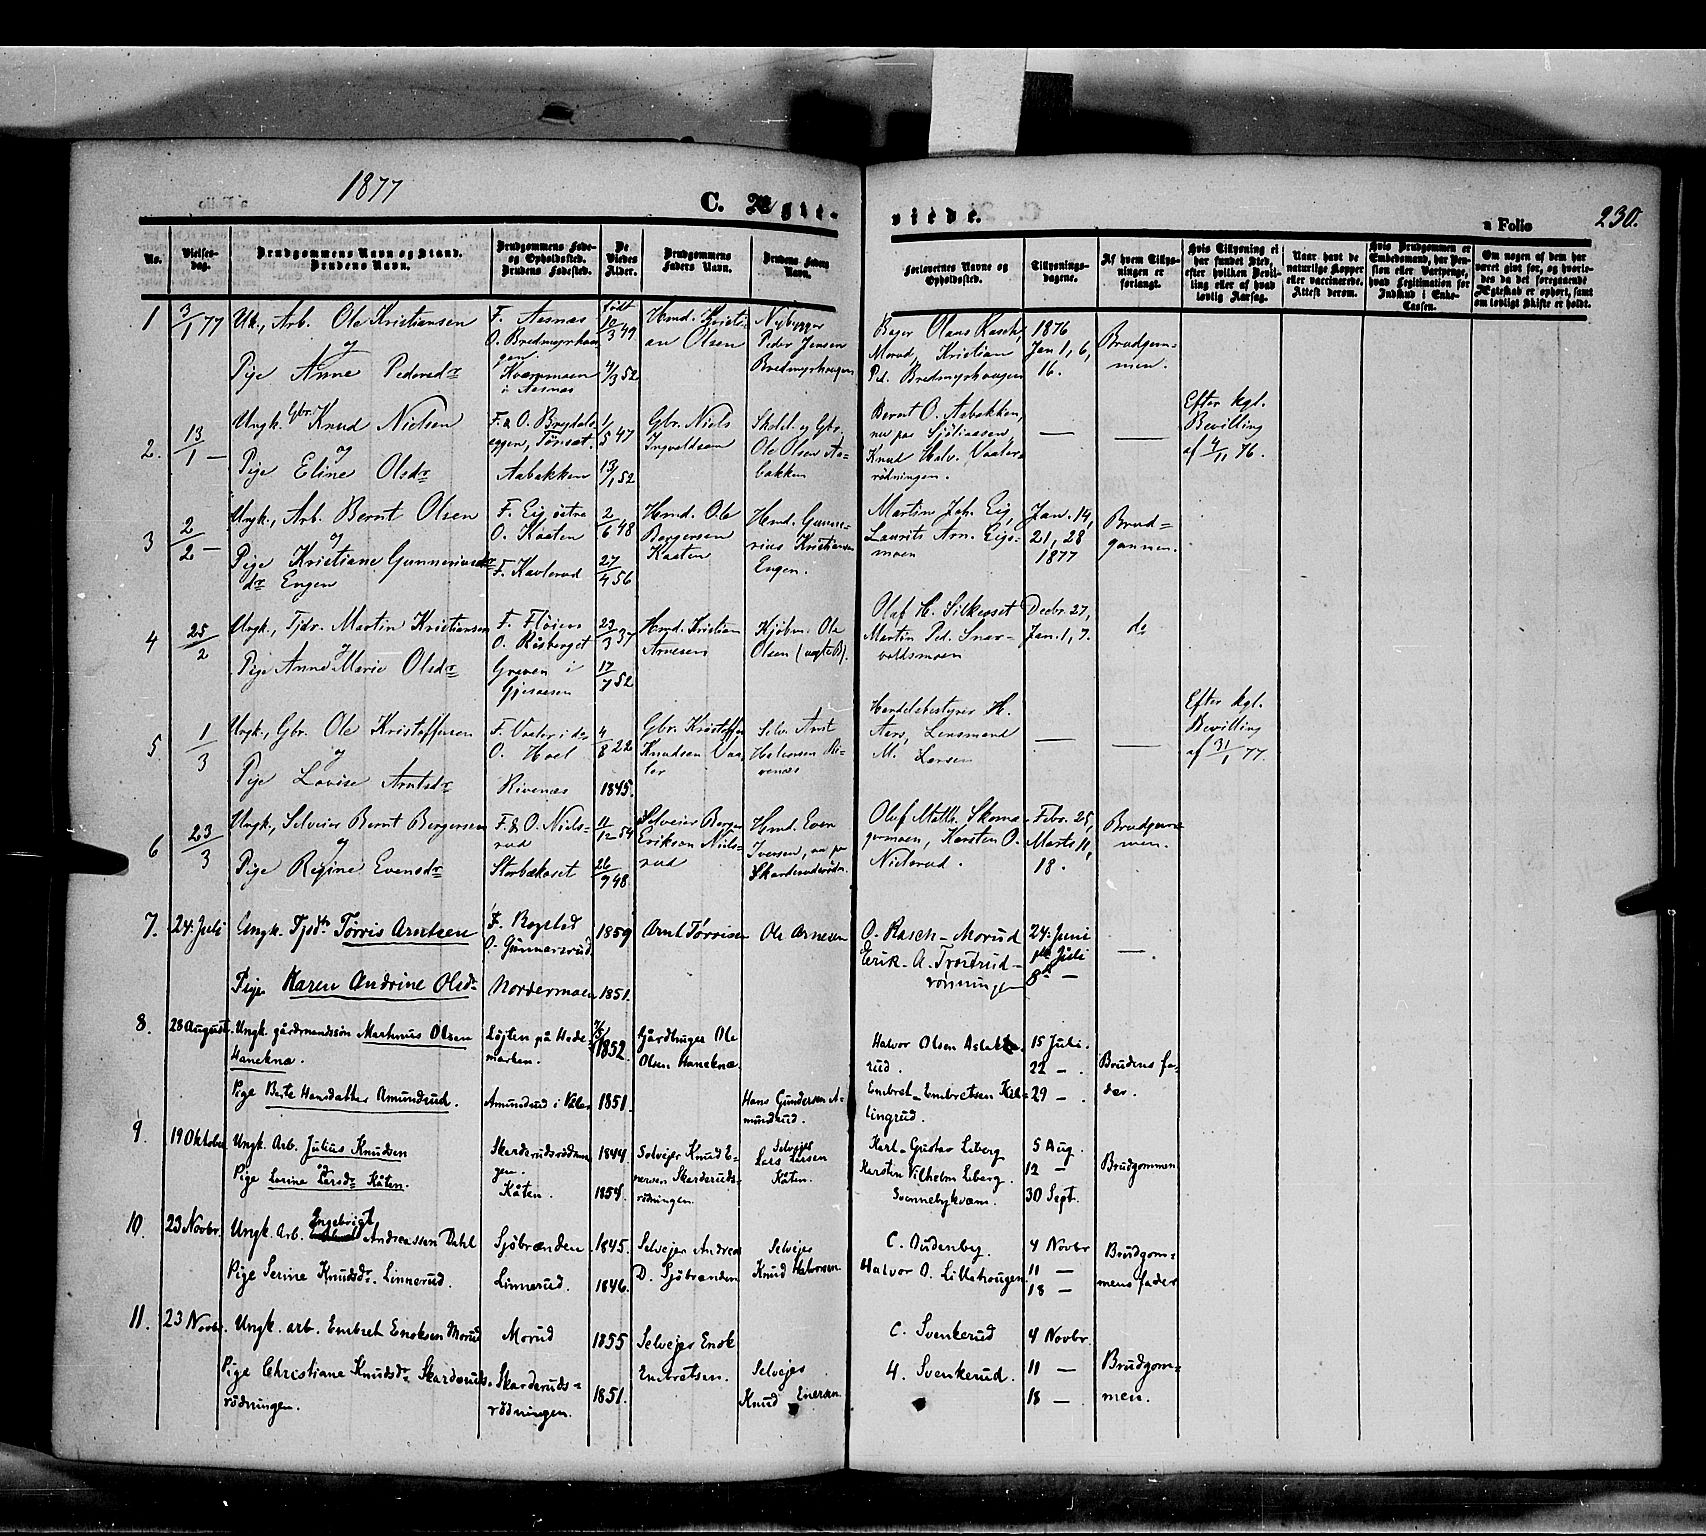 1877
C. Ægte-
viede.
a Folio
230.
No.
Vielses-
dag.
Brudgommens Navn og Stand.
Brudens Navn.
Brudgommens Føde-
og Opholdssted.
Brudens Fødested.
De
Viedes
Alder.
Brudgommens
Faders Navn.
Brudens Faders
Navn.
Forlovernes Navne og
Opholdssted.
Tillysnings-
dagene.
Af hvem Tillys-
ningen er
forlangt.
Hvis Tillysning ei
har fundet Sted,
efter hvilken Bevil-
ling eller af hvad
lovlig Aarsag.
Naar havt de
naturlige Kopper
eller vaccinerede.
Attest derom.
Hvis Brudgommen er
Embedsmand, har Pen-
sion eller Vartpenge,
hvad Legitimation for
Indskud i Enke-
Cassen.
Om nogen af dem har
været gift før, og hvorle-
des da det foregaaende
Ægteskab er ophørt, samt
om lovligt Skifte er holdt.
1
3/1 77
Uk., Arb. Ole Kristiansen
og
Pige Anne Pedersdr
F. Aasnæs
O. Bredmyrhau
gen
Kværnmoen
i Aasnæs
født
10/3 49
4/3 52
Hmd. Kristi-
an Olsen
Nybygger
Peder Jensen
Bredmyrhaugen
Bager Olaus Rasch,
Morud, Kristian
Ped. Bredmyrhaugen
1876
Jan 1, 6,
16.
Brudgom-
men.
2.
13/1 —
Ungk. Gbr. Knud Nielsen
og
Pige Eline Olsdr
F. & O. Brydals
eggen, Tønset
Aabakken
1/5 47
13/1 52
Gbr. Niels
Ingvaldsen
Skolel. og Gbr.
Ole Olsen Aa-
bakken
Bernt O. Aabakken,
nu paa Sjöliaasen,
Knud Halv. Vaaler-
rödningen.
—
—
Efter kgl.
Bevilling
af 4/11 76.
3
2/2 —
Ungk., Arb. Bernt Olsen
og
Pige Kristiane Gunneriusdr
dr Engen
F. Eig östre
O. Kaaten
F. Kavlerud
2/6 48
27/4 56
Hmd. Ole
Borgersen
Kaaten
Hmd. Gunne-
rius Kristiansen
Engen.
Martin Joh. Eig,
Laurits Arn. Eigs-
moen
Jan. 14,
21, 28
1877
Brud=
gommen.
4
25/2
Ungk., Tjdr. Martin Kristiansen
og
Pige Anne Marie Olsdr
F. Flöien
O. Risberget
Graven i
Gjesaasen
23/3 37
17/7 52
Hmd. Kristian
Arnesen
Kjöbm. Ole
Olsen (uægte B).
Olaf H. Silkeaset
Martin Ped. Snar-
voldsmoen
Decbr. 27,
Jan. 1, 7.
do
5
1/3
Ungk., Gbr. Ole Kristoffersen
og
Pige Lovise Arntsdr
F. Vaaler i dr
O. Hoel
Rivenæs
4/8 22
1845.
Gbr. Kristoffer
Knudsen Vaa-
ler
Selv. Arnt
Halvorsen Ri-
venæs
Handelsbestyrer H.
Aas, Lensmand
M. Larsen
—
—
Efter kgl.
Bevilling
af 31/1 77.
6
23/3
Ungk., Selveier Bernt Bergersen
og
Pige Regine Evensdr
F. & O. Niels-
rud
Storbækaset
11/12 54
26/9 48
Selveier Berger
Erikson Niels-
rud
Hmd. Even
Iversen, nu paa
Skarderudsrödn.
Oluf Math. Skoma-
germoen, Karsten O.
Nielsrud.
Febr. 25,
Marts 11,
18.
Brudgom-
men.
7.
24. Juli
Ungk. Tjdr Torris Arntsen
Pige Karen Andrine Olsdr
F. Bogstad
O. Gunnarsrud
Nordermoen
1859
1851.
Arnt Torrisen
Ole Arnesen
O. Rasch - Morud
Erik A. Trostrud-
rönningen
24. Juni
1ste Juli
8de —
—
8.
28 August.
Ungk. gårdmandssön Martinus Olsen
Hanekna.
Pige Berte Hansdatter Amundrud.
Löjten på Hede-
marken.
Amundrud i Våler
1852.
1851.
Gårdbruger Ole
Olsen Haneknæ.
Hans Gundersen A-
mundrud.
Halvor Olsen Aslak
rud.
Embret Embretsen Kil-
lingrud.
15 Juli.
22 —.
29 —.
Brudens fa-
der.
9.
19 Oktober
Ungk. Arb. Julius Knudsen
og
Pige Larine Larsdr Kåten.
Skarderudsrödnin
gen.
Kåten.
1844.
1854.
Selvejer Knud E-
nersen Skarderuds-
rödningen.
Selvejer
Lars Larsen
Kåten.
Karl Gustav Liberg
Karsten Vilhelm Liberg.
Svennebykvern.
5 Aug.
12 —
30 Sept.
Brudgommen
10.
23 Novbr.
Ungk. Arb. Engebrigt Andreassen Dahl
Pige Serine Knudsdr. Linnerud.
Sjöbrænden
Linnerud.
1845.
1846.
Selvejer Andreas
D. Sjöbrænden
Selvejer
Knud Halvorsen
C. Audenby.
Halvor O. Lillehougen.
4 Novbr
11 —
18 —
Brudgom=
mens fader
11.
23 Novbr.
Ungk. arb. Embret Enoksen Morud
Pige Christiane Knudsdr Skarderuds-
rödningen.
Morud
Skarderuds=
rödningen.
1855
1851.
Selvejer Enok
Embretsen.
Selvejer
Knud Enersen
C. Svenkerud
H. Svenkerud.
4 Novbr.
11 —
18 —
Brudgom=
men.